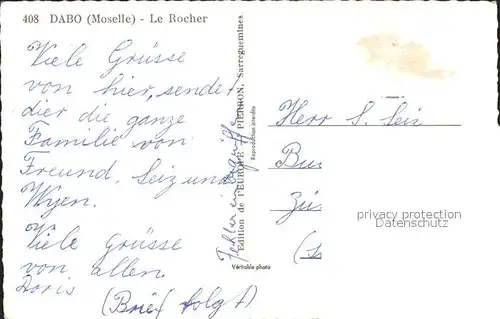 408 DABO (Moselle) - Le Rocher
Viele Grüsse
von hier, sendet
dier die ganze
Familie von
Freund. Seiz und
Wyen.
Viele Grüsse
von allen.
Doris
(Brief folgt)
Edition de l'EUROPE PIERRON, Sarreguemines
Reproduction interdite
Véritable photo
Herr S. Seiz
privacy protection
Datenschutz